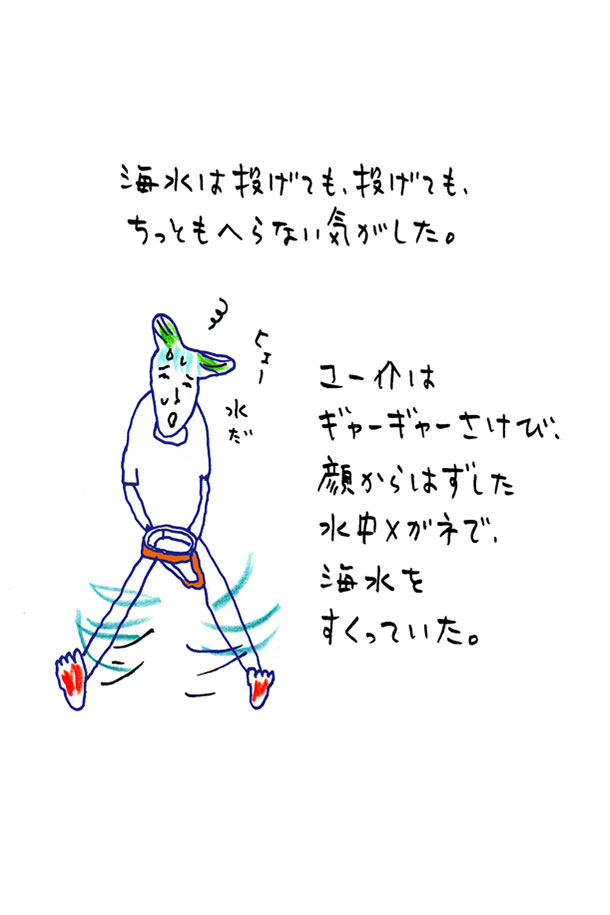 海水は投げても、投げても、
ちっともへらない気がした。
ヒェー
水だ
ユー介は
ギャーギャーさけび、
顔からはずした
水中メガネで、
海水を
すくっていた。